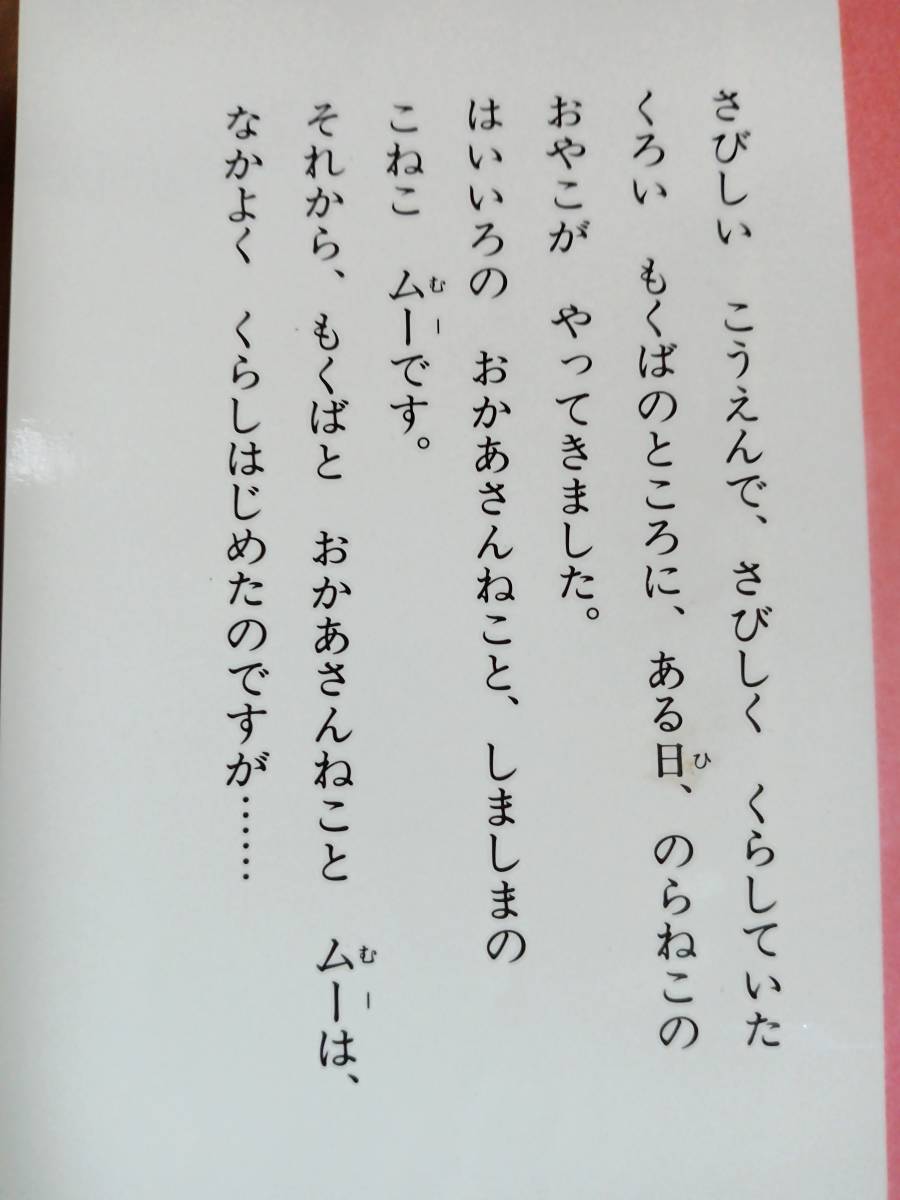 さびしい　こうえんで、さびしく　くらしていた
くろい　もくばのところに、ある日、のらねこの
おやこが　やってきました。
はいいろの　おかあさんねこと、しましまの
こねこ　ムーです。
それから、もくばと　おかあさんねこと　ムーは、
なかよく　くらしはじめたのですが……